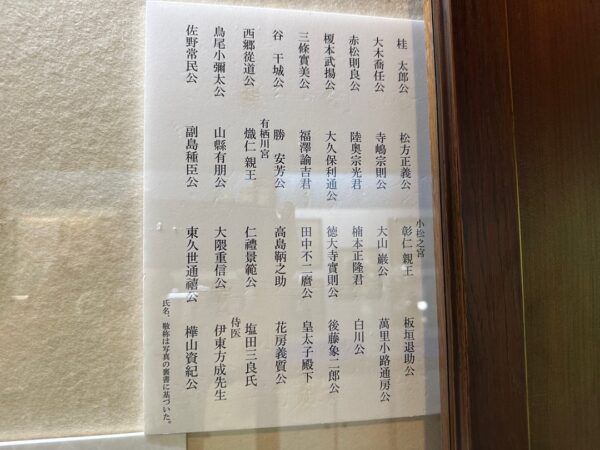 桂 太郎公 松方正義公 小松之宮 彰仁親王 板垣退助公
大木喬任公 寺嶋宗則公 大山 巌公 萬里小路通房公
赤松則良公 陸奥宗光君 楠本正隆君 白川公
榎本武揚公 大久保利通公 徳大寺實則公 後藤象二郎公
三條實美公 福澤諭吉君 田中不二麿公 皇太子殿下
谷 干城公 勝 安芳公 高島鞆之助 花房義質公
西郷従道公 有栖川宮 熾仁親王 仁禮景範公 侍医 塩田三良氏
鳥尾小彌太公 山縣有朋公 大隈重信公 伊東方成先生
佐野常民公 副島種臣公 東久世通禧公 樺山資紀公
氏名、敬称は写真の裏書に基づいた。